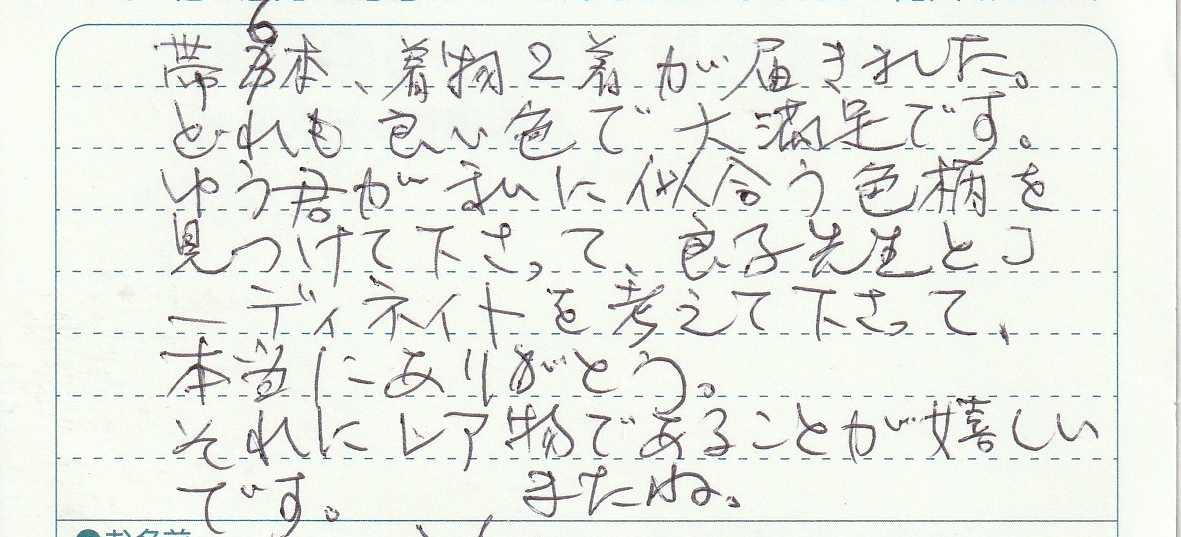 帯6本、着物2着が届きました。
どれも良い色で大満足です。
ゆう君が私に似合う色柄を
見つけて下さって、良子先生とコ
ーディネイトを考えて下さって、
本当にありがとう。
それにレア物であることが嬉しい
です。 またね。